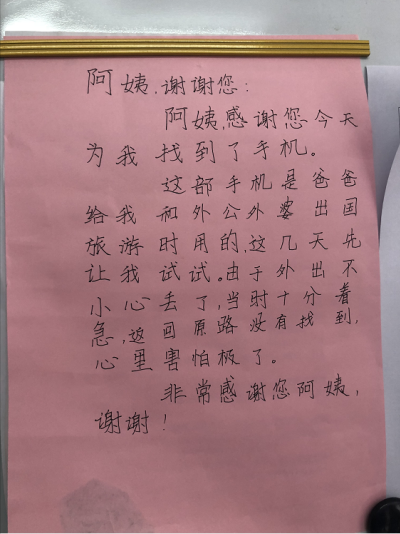 阿姨，谢谢您：
阿姨，感谢您今天
为我找到了手机。
这部手机是爸爸
给我和外公外婆出国
旅游时用的，这几天先
让我试试。由于外出不
小心丢了，当时十分着
急，返回原路没有找到，
心里害怕极了。
非常感谢您阿姨，
谢谢！